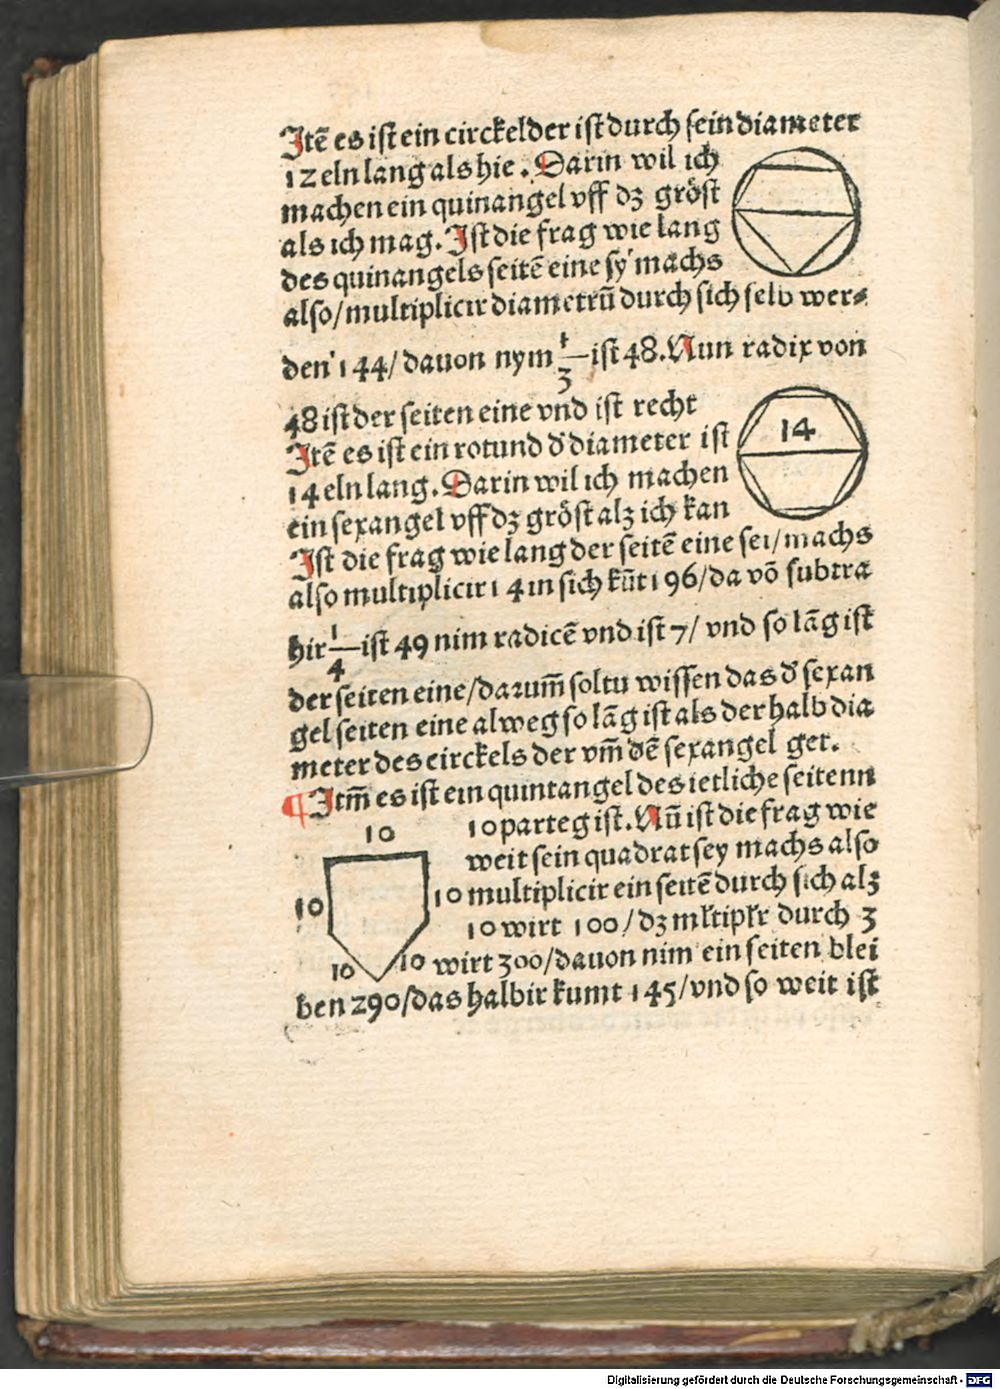 Itē es ist ein circkel der ist durch sein diameter
12 eln lang als hie. Darin wil ich
machen ein quinangel vff dz gröst
als ich mag. Ist die frag wie lang
des quinangels seitē eine sy machs
also/multiplicir diametrū durch sich selb wer-
den 144/ dauon nym 1/3 ist 48. Nun radix von
48 ist der seiten eine vnd ist recht
Itē es ist ein rotund d' diameter ist
14 eln lang. Darin wil ich machen
ein sexangel vff dz gröst alz ich kan
14
Ist die frag wie lang der seitē eine sei/machs
also multiplicir 14 in sich kūt 196/da vō subtra
hir 1/4 ist 49 nim radicē vnd ist 7/ vnd so lāg ist
der seiten eine/darum̄ soltu wissen das d' sexan
gel seiten eine alweg so lāg ist als der halb dia
meter des circkels der vm̄ dē sexangel get.
¶ Itm̄ es ist ein quintangel des ietliche seitenn
10 parteg ist. Nū ist die frag wie
weit sein quadrat sey machs also
multiplicir ein seitē durch sich alz
10 wirt 100/ dz ml'tipl'r durch 3
wirt 300/dauon nim ein seiten blei
ben 290/das halbir kumt 145/vnd so weit ist
10
10
10
10
10
Digitalisierung gefördert durch die Deutsche Forschungsgemeinschaft - DFG